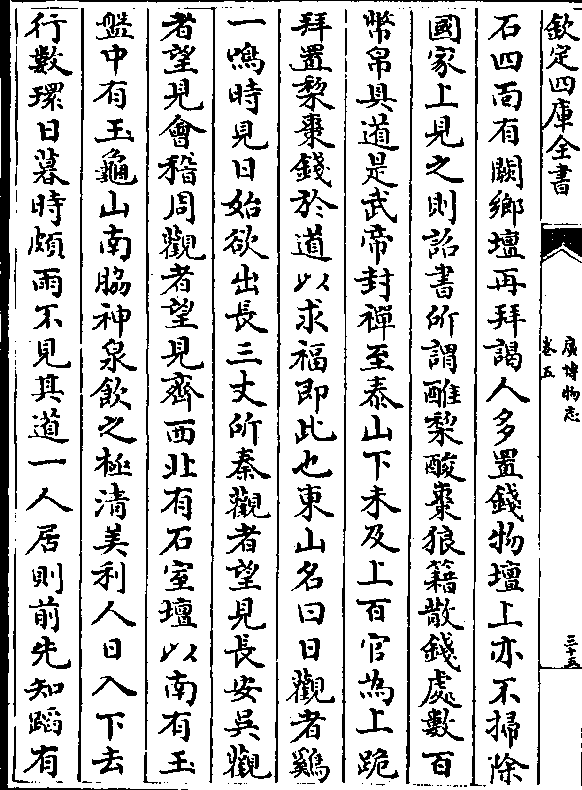 欽定四庫全書
廣博物志
卷五
三十五
石四面有闕鄉壇再拜謁人多置錢物壇上亦不掃除
國家上見之則詔書所謂酢棃酸棗狼籍散錢處數百
幣帛具道是武帝封禪至泰山下未及上百官為上跪
拜置棃棗錢於道以求福即此也東山名曰日觀者雞
一鳴時見日始欲出長三丈所秦觀者望見長安吳觀
者望見會稽周觀者望見齊西北有石室壇以南有玉
盤中有玉龜山南脇神泉飲之極清美利人日入下去
行數環日暮時頗雨不見其道一人居則前先知蹈有